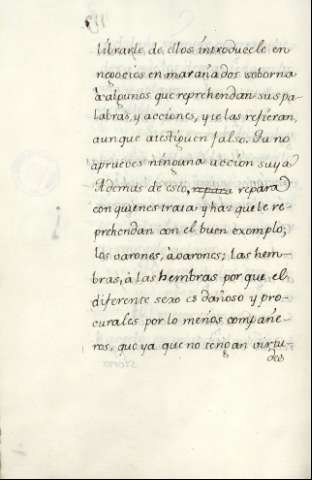 librarle de ellos introducele en
negocios en marañados soborna
à algunos que reprehendan sus pa-
labras, y acciones, y te las refieran,
aunque atestiguen falso. Tu no
apruebes ninguna accion suya
Ademas de esto, repara repara
con quienes trata y haz que le re-
prehendan con el buen exemplo;
los varones, à varones; las hem-
bras, à las hembras por que el
diferente sexo es dañoso y pro-
curales por lo menos compañe-
ros, que ya que no tengan virtu-
des